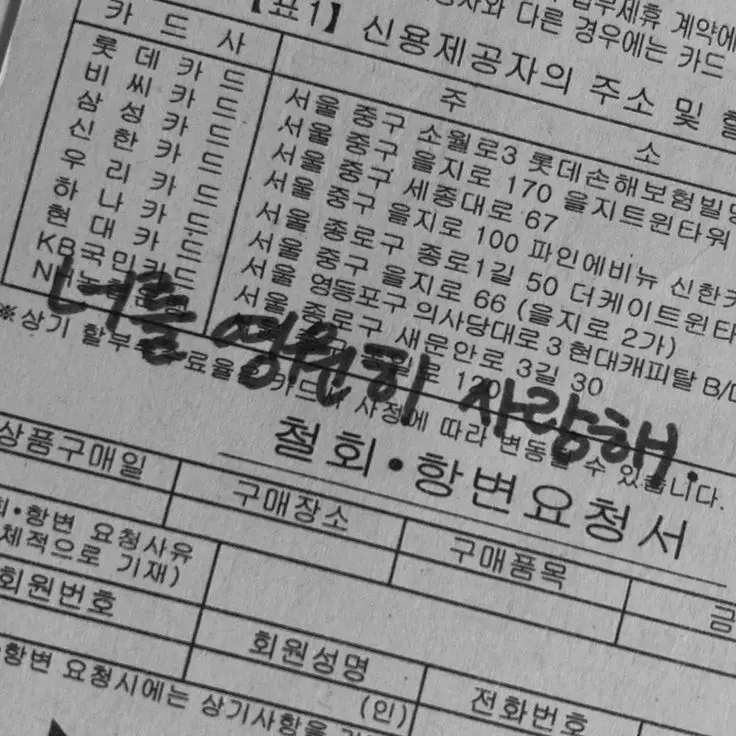 업무제휴 계약에
공자와 다른 경우에는 카드
【표1】 신용제공자의 주소 및 할
카 드 사
주 소
롯 데 카 드
서울 중구 소월로3 롯데손해보험빌딩
비 씨 카 드
서울 중구 을지로 170 을지트윈타워
삼 성 카 드
서울 중구 세종대로 67
신 한 카 드
서울 중구 을지로 100 파인에비뉴 신한카
우 리 카 드
서울 종로구 종로1길 50 더케이트윈타
하 나 카 드
서울 중구 을지로 66 (을지로 2가)
현 대 카 드
서울 영등포구 의사당대로 3 현대캐피탈 B/D
KB국민카드
서울 종로구 새문안로 3길 30
120
너를 영원히 사랑해.
※상기 할부 카드 사정에 따라 변동될 수 있습니다.
철회·항변요청서
상품구매일
구매장소
구매품목
금
회·항변 요청사유
체적으로 기재)
회원번호
회원성명
(인)
전화번호
항변 요청시에는 상기사항을